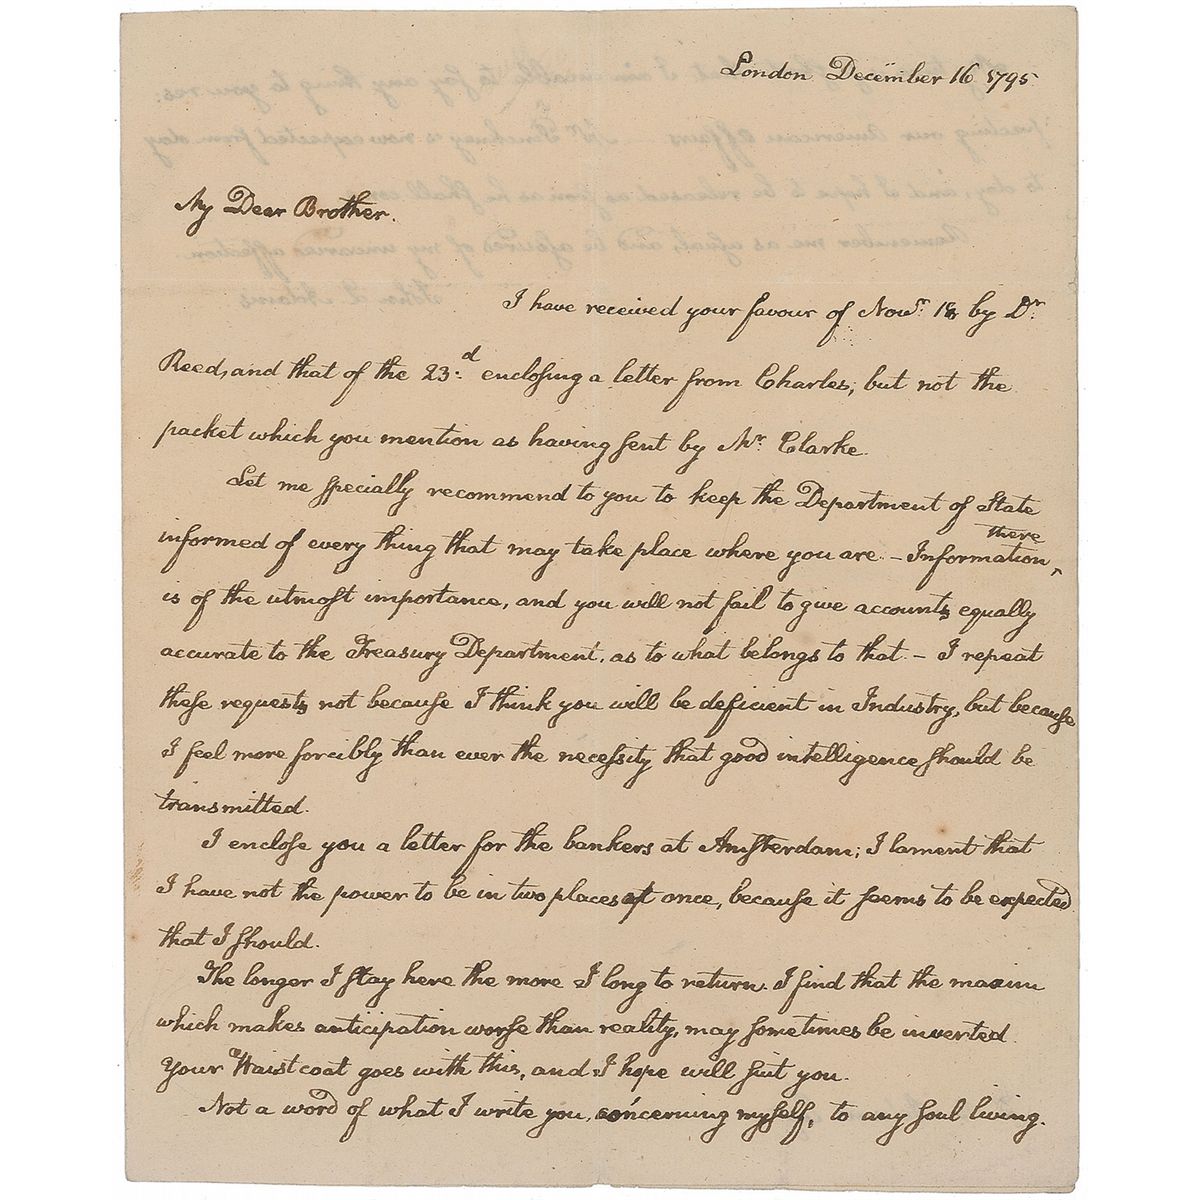 London December 16 1795
My Dear Brother.
I have received your favour of Novr. 18 by Dr.
Reed, and that of the 23.d enclosing a letter from Charles; but not the
packet which you mention as having sent by Mr. Clarke.
Let me specially recommend to you to keep the Department of State
informed of every thing that may take place where you are. - Information, ^there
is of the utmost importance, and you will not fail to give accounts equally
accurate to the Treasury Department, as to what belongs to that. - I repeat
these requests not because I think you will be deficient in Industry, but because
I feel more forcibly than ever the necessity that good intelligence should be
transmitted.
I enclose you a letter for the bankers at Amsterdam; I lament that
I have not the power to be in two places at once, because it seems to be expected
that I should.
The longer I stay here the more I long to return. I find that the maxim
which makes anticipation worse than reality, may sometimes be inverted.
Your Waistcoat goes with this, and I hope will suit you.
Not a word of what I write you, concerning myself, to any soul living.